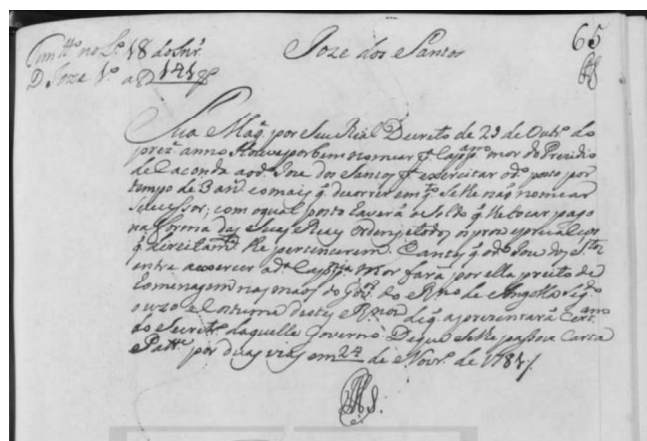 Joze dos Santos
65
no L.º 18 do Snr.
D. Joze 1.º a f 141
Sua Mag.e por Seu Real Decreto de 29 de Out.º do
prez.e anno Houve por bem nomear p.ª Capp.am mor do Prezidio
de Caconda ao d.º Joze dos Santos p.ª exercitar o d.º posto por
tempo de 3 an.s e o mais q. decorrer em q.to Se lhe não nomear
Sucessor; com o qual posto haverá o Soldo q. lhe tocar pago
na forma das Suas Reaes ordens, e todos os proes e precalços
q. direitam.te lhe pertencerem. E antes q. o d.º Joze dos S.tos
entre a exercer a d.ª Capp.nia mor fará por ella preito de
homenagem nas mãos do Gov.or do R.no de Angolla seg.do
o uzo e Costume deste R.no de q. aprezentará Cert.am
do Secret.º daquelle Governo De que Se lhe passou Carta
Patt.e por duas vias em 24 de Novr.º de 178